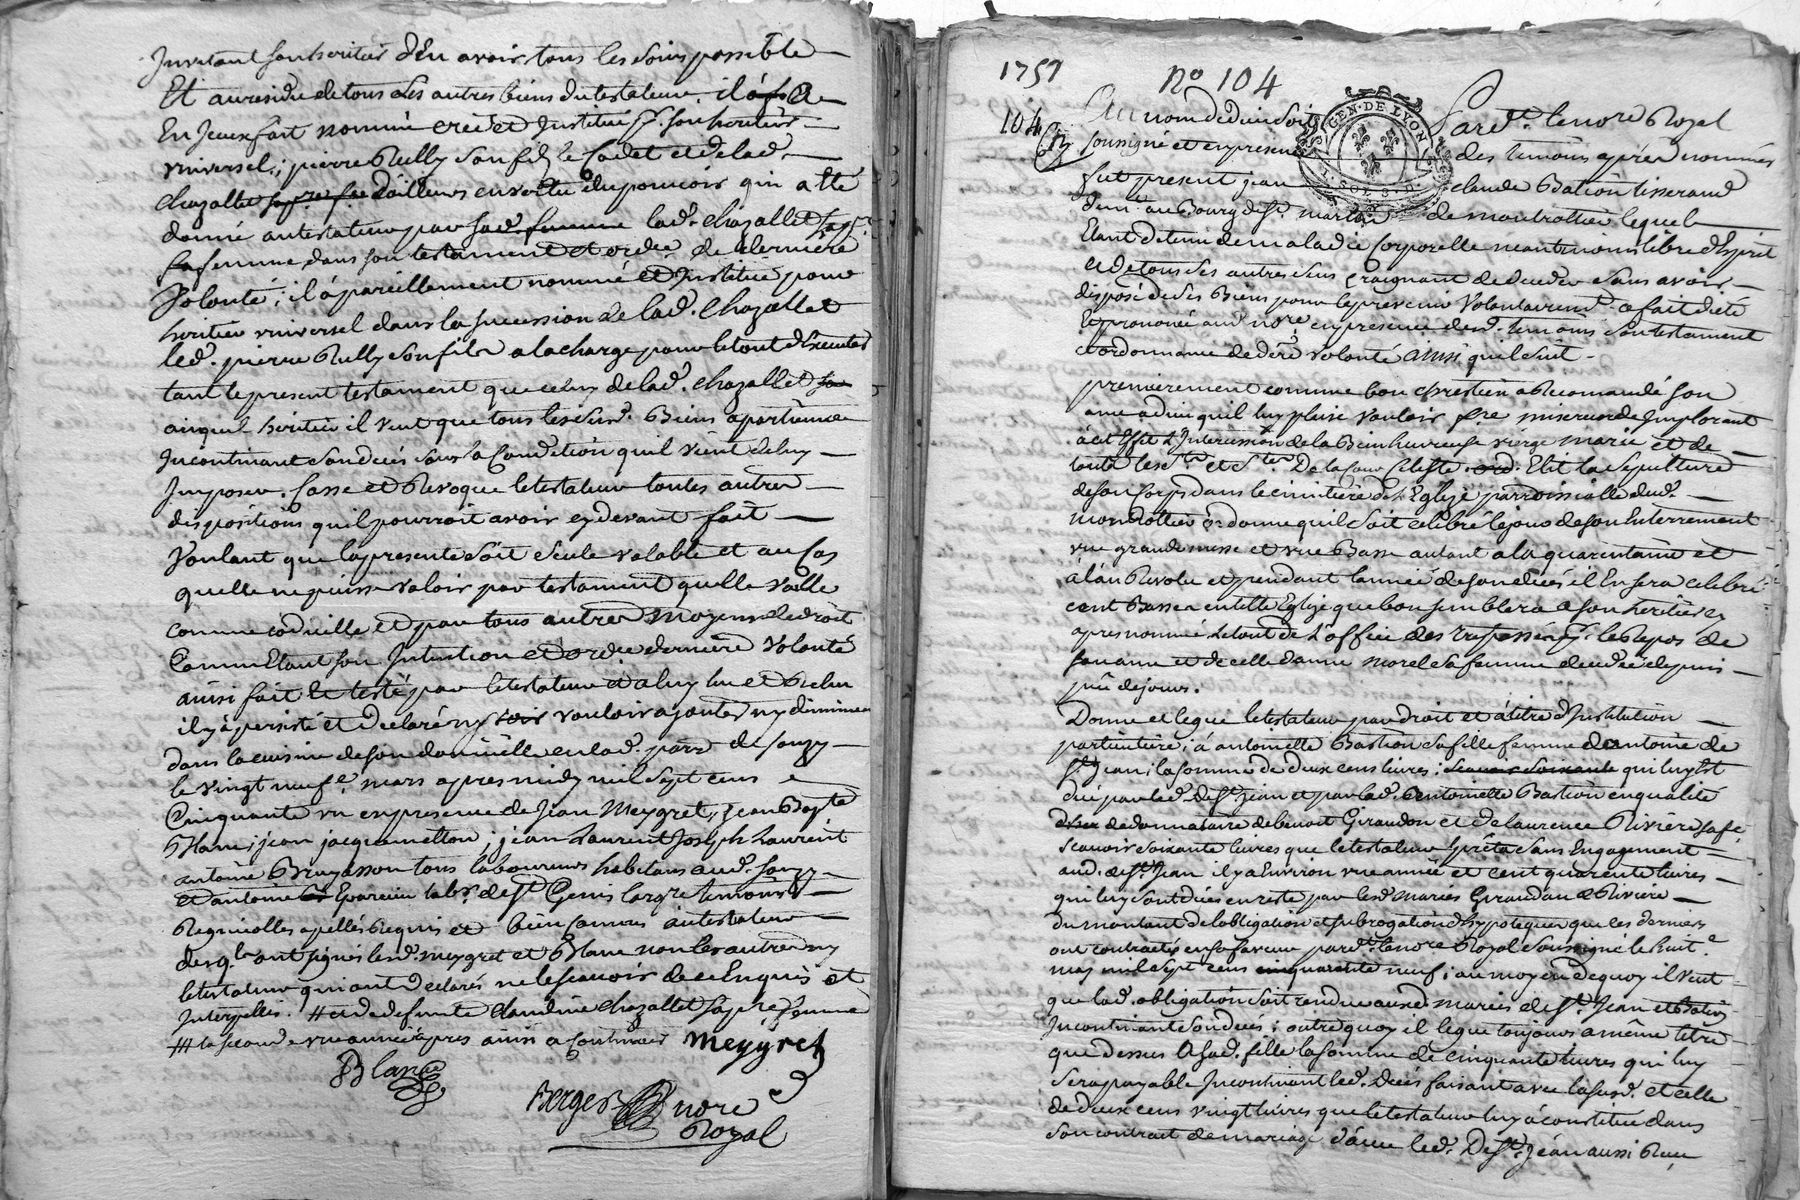 Invitant son heritier d'En avoir tous les soins possible
Et au residu de tous ses autres biens du testateur il a
En Iceux fait nommé créé et Institué pr. son heritier
vniversel; pierre Rully son fils le Cadet et de lad.
chazallet d'ailleurs en vertu du pouvoir qui a été
donné au testateur par lad. chazallet
sa femme dans son testament et ordce. de derniere
Volonté; il a pareillement nommé et Institué pour
heritier vniversel dans la succession de lad. Chazallet
led. pierre Rully son fils a la charge pour le tout d'Executer
tant le present testament que celuy de lad. chazallet
auquel heritier il veut que tous lesdsus. Biens apartienne
Incontinant son decés sous la Condition quil vient de luy
Imposer. Casse et Revoque le testateur toutes autres
dispositions quil pourroit avoir cy devant fait
Voulant que la presente soit seule valable et au Cas
quelle ne puisse valoir par testament quelle vaille
comme codicille et par tous autres moyens de droit
Comm'Etant son Intention et ordce derniere volonté
ainsi fait et testé par le testateur et a luy lu et Relu
il y a persisté et declaré ny vouloir ajouter ny diminuer
dans la cuisine de son domicille en lad. parr. de souzy
le vingt neufe. mars apres midy mil sept cens
Cinquante vn en presence de Jean Meygret, Jean Bapte
Blanc; jean jacquemetton; jean Laurent Joseph Laurent
antoine Bruyasson tous laboureurs habitans aud. souzy
et antoine Eparcieu labr. de st. Genis largtre temoins
Regnicolles apellés Requis et bien Connus au testateur
desqls. ont signés lesd. meygret et Blanc non les autres ny
le testateur qui ont declarés ne le scavoir de ce Enquis et
Interpellés. # et de defunte Claudine Chazallet sa pre femme
### la seconde vne année apres ainsi a Continuer Meygret
Blanc
Berger nore
Royal
1757 No 104
104 Au nom de dieu soit Pardt. le nore Royal
soussigné et en presence des temoins apres nommés
fut present jean claude Bation tisserand
demt. au Bourg de st. martin de montrottier lequel
Etant detenu de maladie Corporelle neantmoins libre d'Esprit
et de tous ses autres sens craignant de deceder sans avoir
disposé de ses Biens pour le prevenir Volontairemt. a fait dicté
Et prononcé aud. nore. en presence desd. temoins son testament
et ordonnance de dere volonté ainsi quil suit
premierement comme bon chrestien a Recomandé son
ame a dieu quil luy plaise vouloir fre. misericorde Implorant
a cet Effet L'Intercession de la Bien heureuse vierge marie et de
touts les sts. et stes. De la Cour Celeste. Elit la sepulture
de son Corps dans le cimitiere de l'Eglise parroissialle dud.
montrottier ordonne quil soit celebré le jour de son Enterrement
vne grande messe et vne Basse autant a la quarentaine et
a l'an Revolu et pendant l'année de son deces il En sera celebré
cent Basses en telle Eglise que bon semblera a son heritier
apres nommé le tout de L'office des trepassés pr. le Repos de
son ame et de celle d'anne morel sa femme decedée depuis
peu de jours.
Donne et legue le testateur par droit et a titre d'Institution
particuliere; a antoinette Bation sa fille femme d'antoine de
st. Jean; la somme de deux cens livres; scavoir soixante qui luy Est
due par led. de st. jean et par lad. antoinette Bation en qualité
de donnataire de benoit Giraudon et de laurence Riviere sa fe.
scavoir soixante livres que le testateur prêta sans Engagement
aud. de st. Jean il y a Environ vne année et cent quarente livres
qui luy sont dues en reste par lesd. mariés Giraudon et Riviere
du montant de l'obligation et subrogation d'hypoteque que les derniers
ont contractés en sa faveur pardt. le nore Royal soussigné le huite.
may mil sept cens quarente neuf; au moyen de quoy il veut
que lad. obligation soit rendue auxd. mariés de st. Jean et Bation
Incontinant son decés; outre quoy il legue toujours a même titre
que dessus a sad. fille la somme de cinquante livres qui luy
sera payable Incontinant led. Decés faisant avec la susd. et celle
de deux cens vingt livres que le testateur luy a constitué dans
son contrat de mariage d'avec led. De st. Jean aussi Reçu